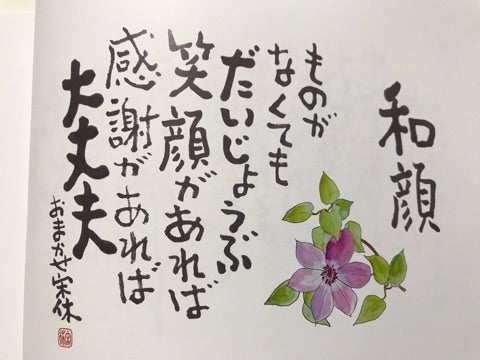 和顔
ものが
なくても
だいじょうぶ
笑顔があれば
感謝があれば
大丈夫
おまかせ宗休